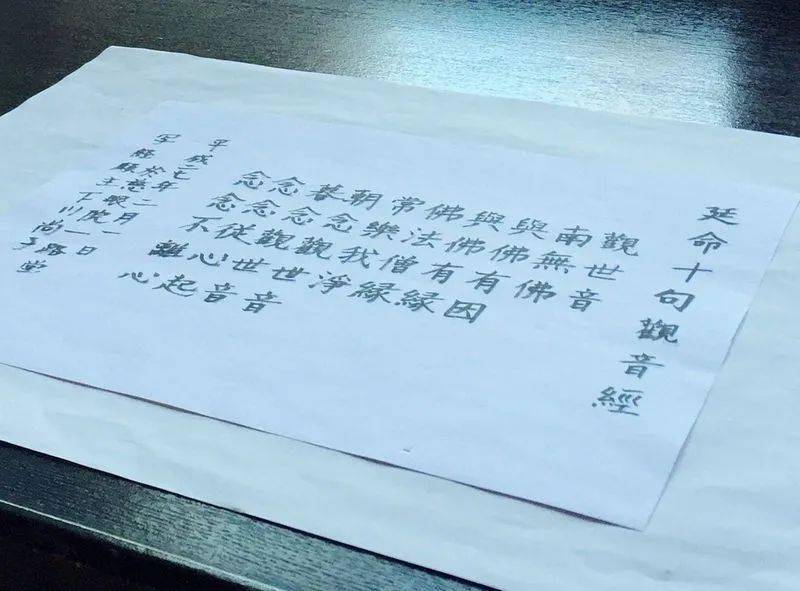 延命十句觀音經
觀世音
南無佛
與佛有因
與佛有縁
佛法僧縁
常樂我淨
朝念觀世音
暮念觀世音
念念從心起
念念不離心
平成二七年二月一一日